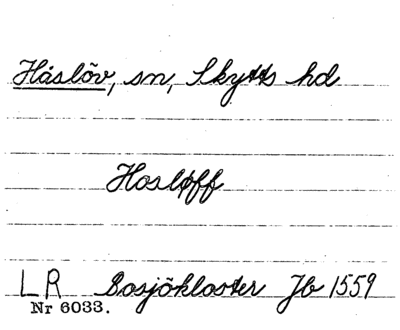 Håslöv, sn, Skytts hd
Hosløff
LR Bosjökloster Jb 1559
Nr 6033.